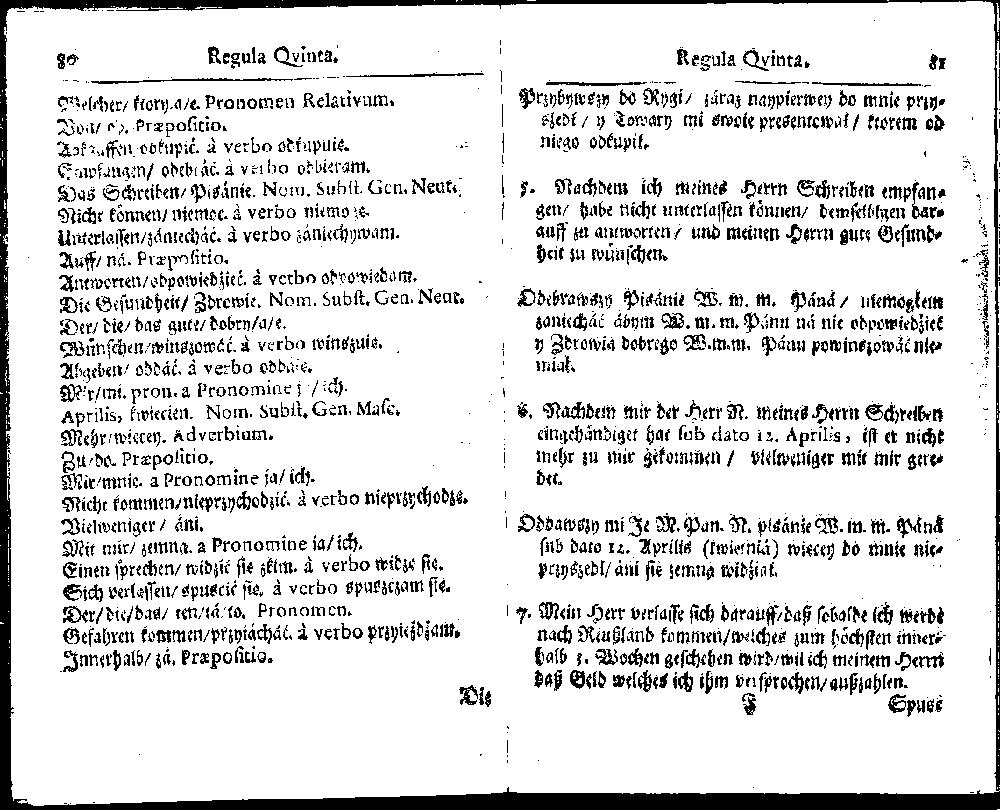 80 Regula Qvinta.
Welcher/ ktory.a/e. Pronomen Relativum.
Von/ od. Præpositio.
odkupić. à verbo odkupuie.
Empfangen/ odebráć. à verbo odbieram.
Das Schreiben/ Pisánie. Nom. Subst. Gen. Neut.
Nicht können/ niemoc. à verbo niemoze.
Unterlassen/zániecháć. à verbo zániechywam.
Auff/ ná. Præpositio.
Antworten/odpowiedzieć. à verbo odpowiedam.
Die Gesundheit/ Zdrowie. Nom. Subst. Gen. Neut.
Der/ die/ das gute/ dobry/a/e.
Wünschen/winszowáć. à verbo winszuie.
Abgeben/ oddáć. à verbo oddáie.
Mir/mi. pron. a Pronomine ja/ ich.
Aprilis, kwiecien. Nom. Subst. Gen. Masc.
Mehr/wiecey. Adverbium.
Zu/do. Præpositio.
Mir/mnie. a Pronomine ja/ ich.
Nicht kommen/nieprzychodzić. à verbo nieprzychodze.
Vielweniger/ áni.
Mit mir/ zemna. a Pronomine ja/ ich.
Einen sprechen/ widzić sie zkim. à verbo widze sie.
Sich verlassen/ spuscić sie. à verbo spusczam sie.
Der/ die/das/ ten/tá/to. Pronomen.
Gefahren kommen/przyiácháć. à verbo przyieżdżam.
Innerhalb/ zá. Præpositio.
Die
Regula Qvinta. 81
Przybywszy do Rygi/ záraz naypierwey do mnie przy-
szedł/ y Towary mi swoie presentował/ ktorem od
niego odkupił.
5. Nachdem ich meines Herrn Schreiben empfan-
gen/ habe nicht unterlassen können/ demselbigen dar-
auff zu antworten/ und meinen Herrn gute Gesund-
heit zu wünschen.
Odebrawszy Pisánie W. m. m. Páná/ niemogłem
zaniecháć ábym W. m. m. Pánu ná nie odpowiedzieć
y Zdrowia dobrego W.m.m. Pánu powinszowáć nie-
miał.
6. Nachdem mir der Herr N. meines Herrn Schreiben
eingehändiget hat sub dato 12. Aprilis, ist er nicht
mehr zu mir gekommen/ vielweniger mit mir gere-
det.
Oddawszy mi Je M. Pan. N. pisánie W. m. m. Páná
sub dato 12. Aprilis (kwietniá) wiecey do mnie nie-
przyszedł/ áni sie zemna widział.
7. Mein Herr verlasse sich darauff/daß sobalde ich werde
nach Rießland kommen/welches zum höchsten inner-
halb 3. Wochen geschehen wird/wil ich meinem Herrn
daß Geld welches ich ihm versprochen/außzahlen.
F Spusc